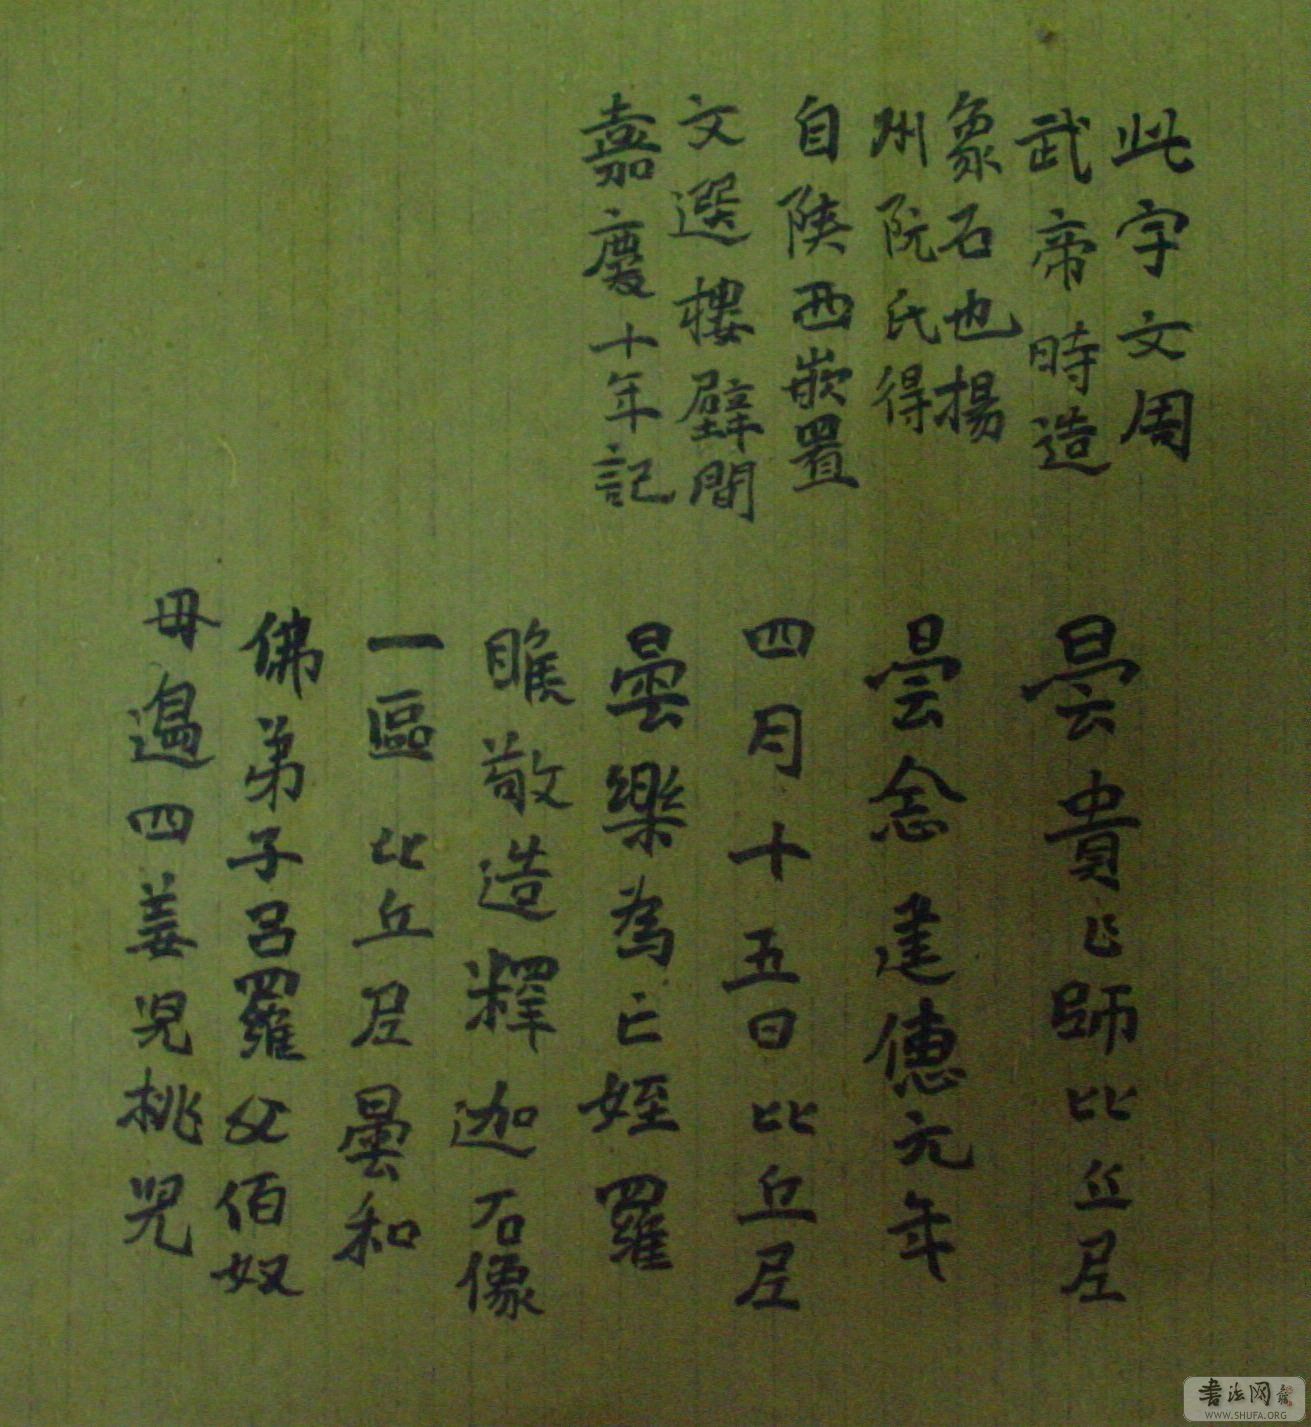 此宇文周
武帝時造
象石也揚
州阮氏得
自陝西嵌置
文選樓壁間
嘉慶十年記
曇貴亡師比丘尼
曇念建德元年
四月十五日比丘尼
曇樂為亡姪羅
睺敬造釋迦石像
一區比丘尼曇和
佛弟子呂羅父伯奴
母 四姜兒桃兒
書法网
WWW.SHUFA.ORG